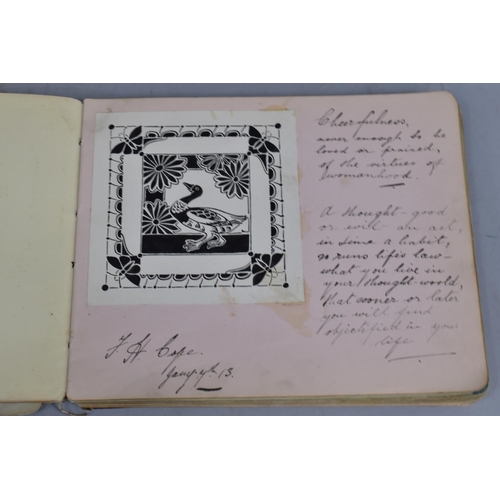 Cheerfulness,
never enough to be
loved or praised,
of the virtues of
womanhood.
A thought - good
or evil an act,
in time a habit,
so runs life's law -
what you live in
your thought-world,
that sooner or later
you will find
objectified in your
life
F H Cope.
13.